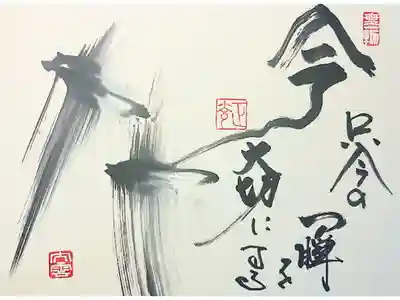 今
只今の
一瞬を
大切に
する